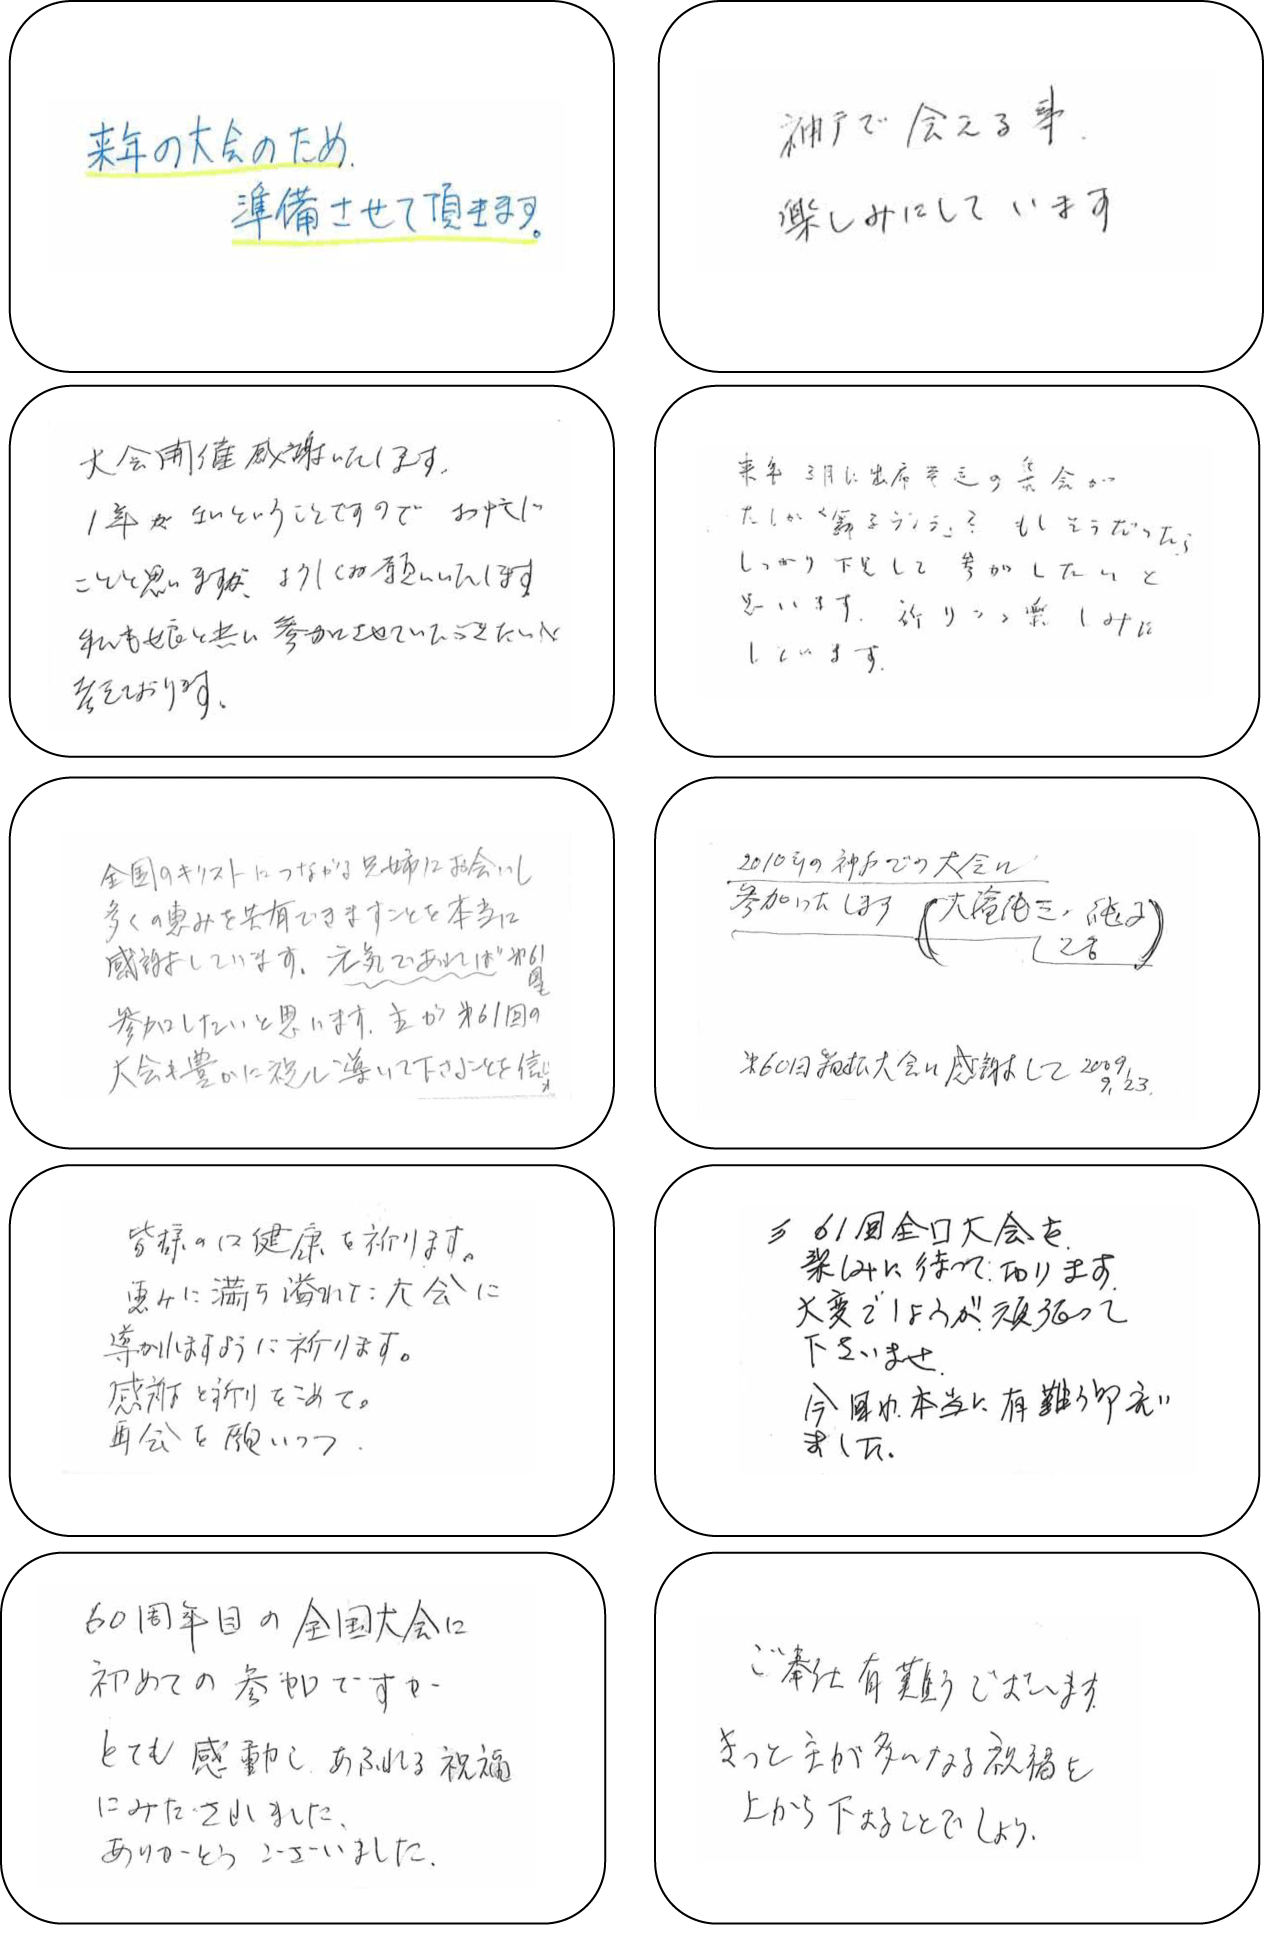 来年の大会のため、
準備させて頂きます。
神戸で会える事、
楽しみにしています
大会開催感謝いたします。
1年が ということですので お忙しい
ことと思いますが、よろしくお願いいたします
私も娘と共に参加させていただきたいと
考えております。
来年3月に出席予定の集会が
たしか ? もしそうだったら
しっかり下見して参加したいと
思います。祈りつつ楽しみに
しています。
全国のキリストにつながる兄姉にお会いし
多くの恵みを共有できますことを本当に
感謝しています。元気であれば第61回
参加したいと思います。主が第61回の
大会も豊かに祝し導いて下さることを信じ
2010年の神戸での大会に
参加いたします
第60回 大会に感謝して 2009.
9.23.
皆様のご健康を祈ります。
恵みに満ち溢れた大会に
導かれますように祈ります。
感謝と祈りをこめて。
再会を願いつつ.
第61回全国大会を
楽しみに待って居ります。
大変でしょうが頑張って
下さいませ。
今回は本当に有難う御座い
ました。
60周年目の全国大会に
初めての参加ですが
とても感動し、あふれる祝福
にみたされました、
ありがとうございました。
ご奉仕有難うございます
きっと主が多いなる祝福を
上から下さることでしょう。